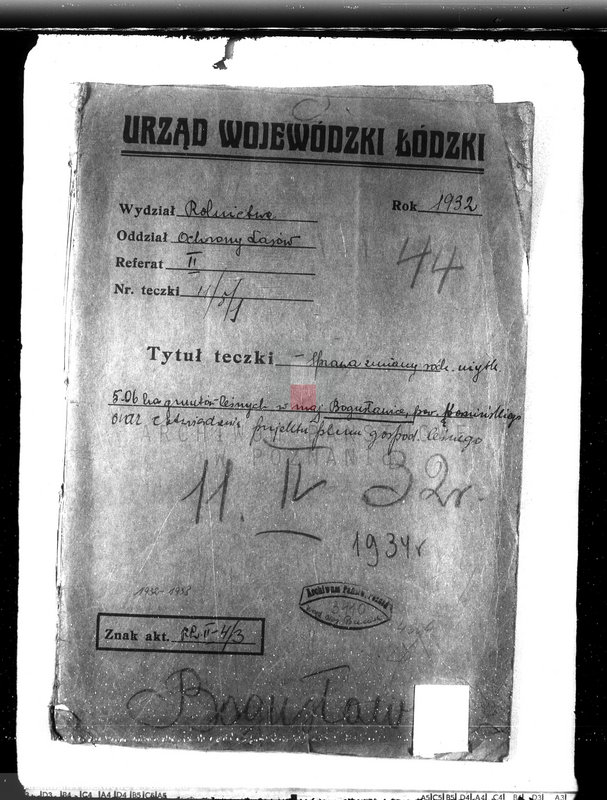 URZĄD WOJEWÓDZKI ŁÓDZKI
Wydział Rolnictwa
Rok 1932
Oddział Ochrony Lasów
44
Referat II
Nr. teczki 11/5/1
Tytuł teczki – Sprawa zmiany rodz. użytk.
5.06 ha gruntów leśnych w maj. Bogusławice, pow. Konińskiego
oraz zatwierdzenie projektu planu gospod. leśnego
ARCHIWUM
W POZNANIU
11. IV 32r.
1934r
1932-1938
Archiwum Państw. Poznań
3410
Znak akt. RL. II-4/3
Bogusław